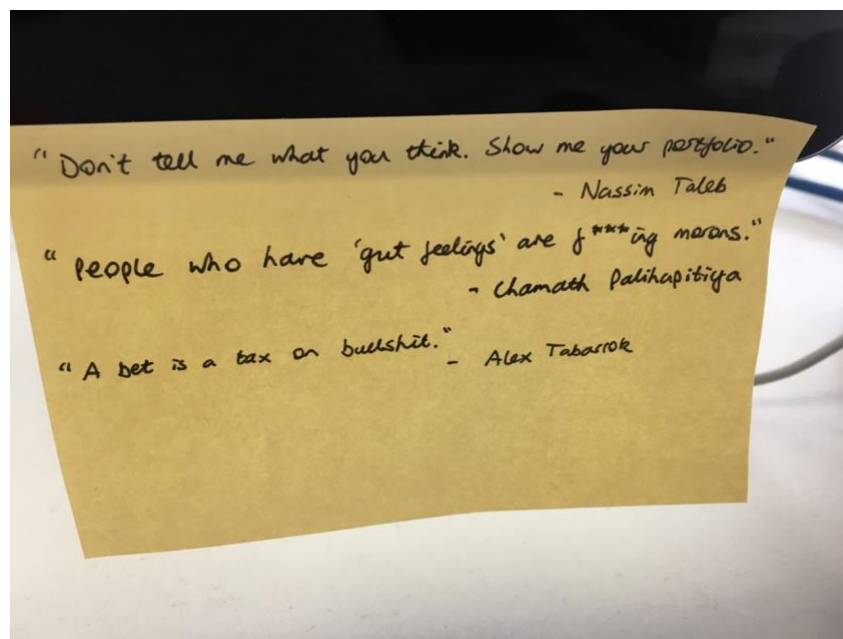 "Don't tell me what you think. Show me your portfolio."
- Nassim Taleb
"People who have 'gut feelings' are f***ing morons."
- Chamath Palihapitiya
"A bet is a tax on bullshit."
- Alex Tabarrok